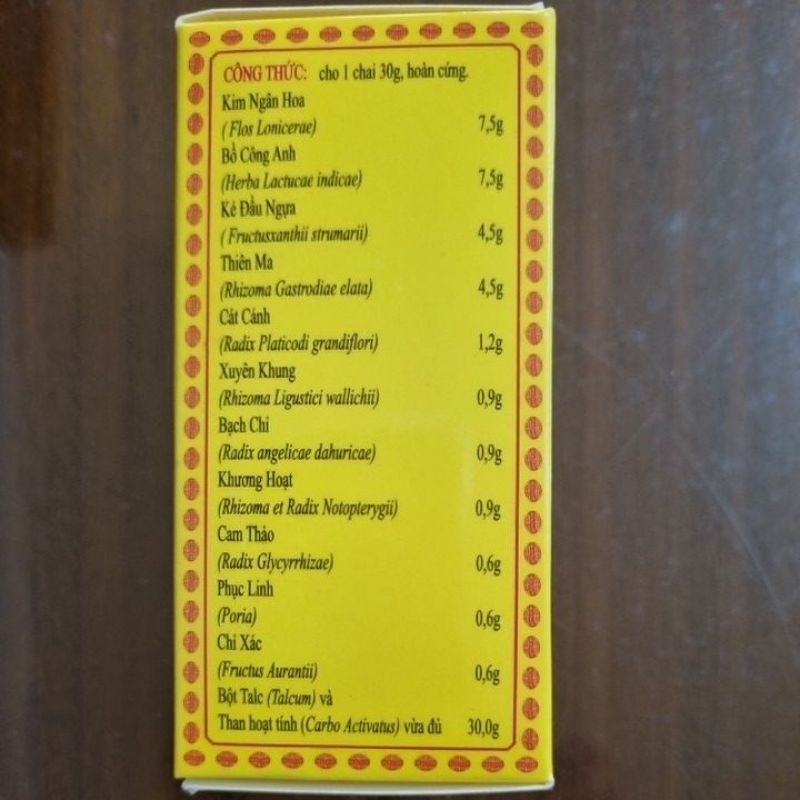 CÔNG THỨC: cho 1 chai 30g, hoàn cứng.
Kim Ngân Hoa
( Flos Lonicerae) 7,5g
Bồ Công Anh
(Herba Lactucae indicae) 7,5g
Ké Đầu Ngựa
( Fructusxanthii strumarii) 4,5g
Thiên Ma
(Rhizoma Gastrodiae elata) 4,5g
Cát Cánh
(Radix Platicodi grandiflori) 1,2g
Xuyên Khung
(Rhizoma Ligustici wallichii) 0,9g
Bạch Chỉ
(Radix angelicae dahuricae) 0,9g
Khương Hoạt
(Rhizoma et Radix Notopterygii) 0,9g
Cam Thảo
(Radix Glycyrrhizae) 0,6g
Phục Linh
(Poria) 0,6g
Chỉ Xác
(Fructus Aurantii) 0,6g
Bột Talc (Talcum) và
Than hoạt tính (Carbo Activatus) vừa đủ 30,0g